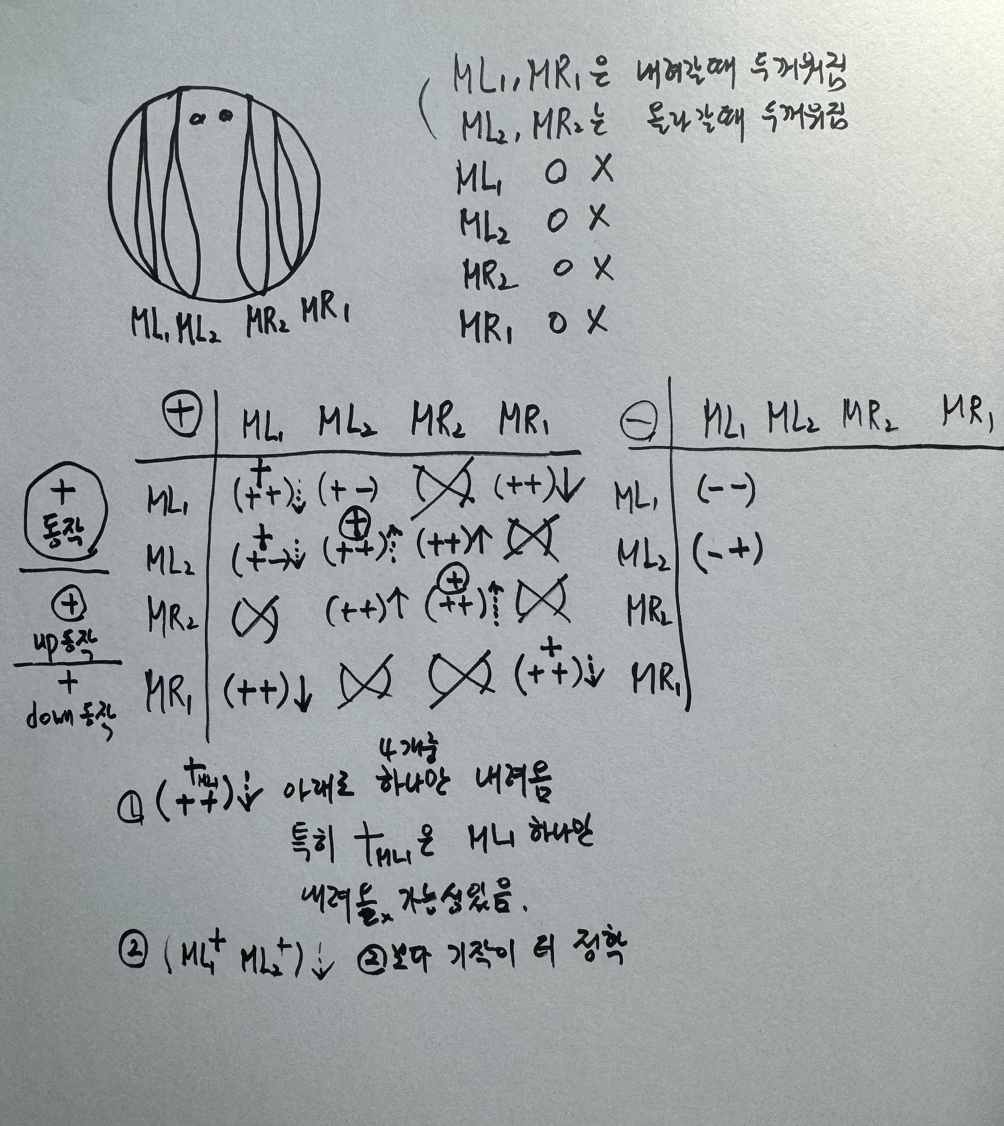 ML₁, MR₁은 내려갈때 두꺼워짐
ML₂, MR₂는 올라갈때 두꺼워짐
ML₁ O X
ML₂ O X
MR₂ O X
MR₁ O X
ML₁ ML₂ MR₂ MR₁
⊕ ML₁ ML₂ MR₂ MR₁
+ 동작
⊕ up동작
+ down 동작
ML₁ (++)+⇣ (+-) (++)↓
ML₂ (+-)+⇣ (++)⊕⇡ (++)↑
MR₂ (++)↑ (++)⊕⇡
MR₁ (++)↓ (++)+⇣
⊖ ML₁ ML₂ MR₂ MR₁
ML₁ (--)
ML₂ (-+)
MR₂
MR₁
① (++)+ML1⇣ 아래로 4개중 하나만 내려옴
특히 +ML1은 ML1 하나만
내려올 가능성있음.
② (ML₁⁺ ML₂⁺)⇣ ②보다 기작이 더 정확